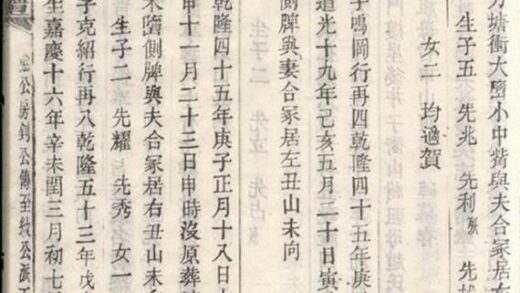 方塘衝大壠小中嘴與夫合冢居
生子五 先兆 先利殀 先
女二 均適賀
子鳴岡行再四乾隆四十五年庚
道光十九年己亥五月二十日寅
側牌與妻合冢居左丑山未向
乾隆四十五年庚子正月十八日
申十一月二十三日申時沒原葬
未墮側牌與夫合冢居右丑山未
生子二 先耀 先秀 女一
子克紹行再八乾隆五十三年戊
生嘉慶十六年辛未閏三月初七
公房釗公傳至 公派